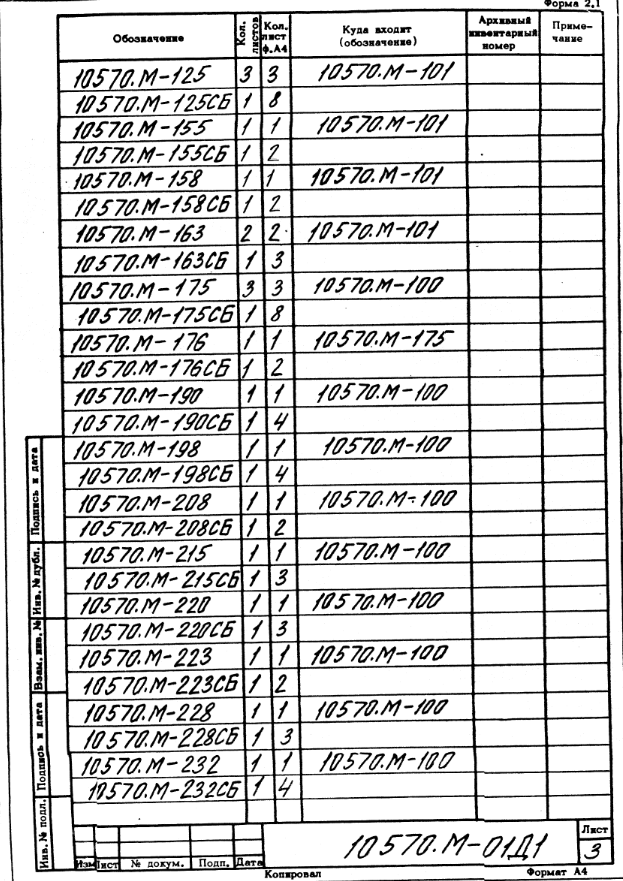 Форма 2.1
Обозначение Кол. листов Кол. лист ф.А4 Куда входит (обозначение) Архивный инвентарный номер Примечание
10570.М-125 3 3 10570.М-101
10570.М-125СБ 1 8
10570.М-155 1 1 10570.М-101
10570.М-155СБ 1 2
10570.М-158 1 1 10570.М-101
10570.М-158СБ 1 2
10570.М-163 2 2 10570.М-101
10570.М-163СБ 1 3
10570.М-175 3 3 10570.М-100
10570.М-175СБ 1 8
10570.М-176 1 1 10570.М-175
10570.М-176СБ 1 2
10570.М-190 1 1 10570.М-100
10570.М-190СБ 1 4
10570.М-198 1 1 10570.М-100
10570.М-198СБ 1 4
10570.М-208 1 1 10570.М-100
10570.М-208СБ 1 2
10570.М-215 1 1 10570.М-100
10570.М-215СБ 1 3
10570.М-220 1 1 10570.М-100
10570.М-220СБ 1 3
10570.М-223 1 1 10570.М-100
10570.М-223СБ 1 2
10570.М-228 1 1 10570.М-100
10570.М-228СБ 1 3
10570.М-232 1 1 10570.М-100
10570.М-232СБ 1 4
Подпись и дата
Инв. № дубл.
Взам. инв. №
Подпись и дата
Инв. № подл.
10570.М-01Д1
Лист
3
Изм Лист № докум. Подп. Дата
Копировал Формат А4